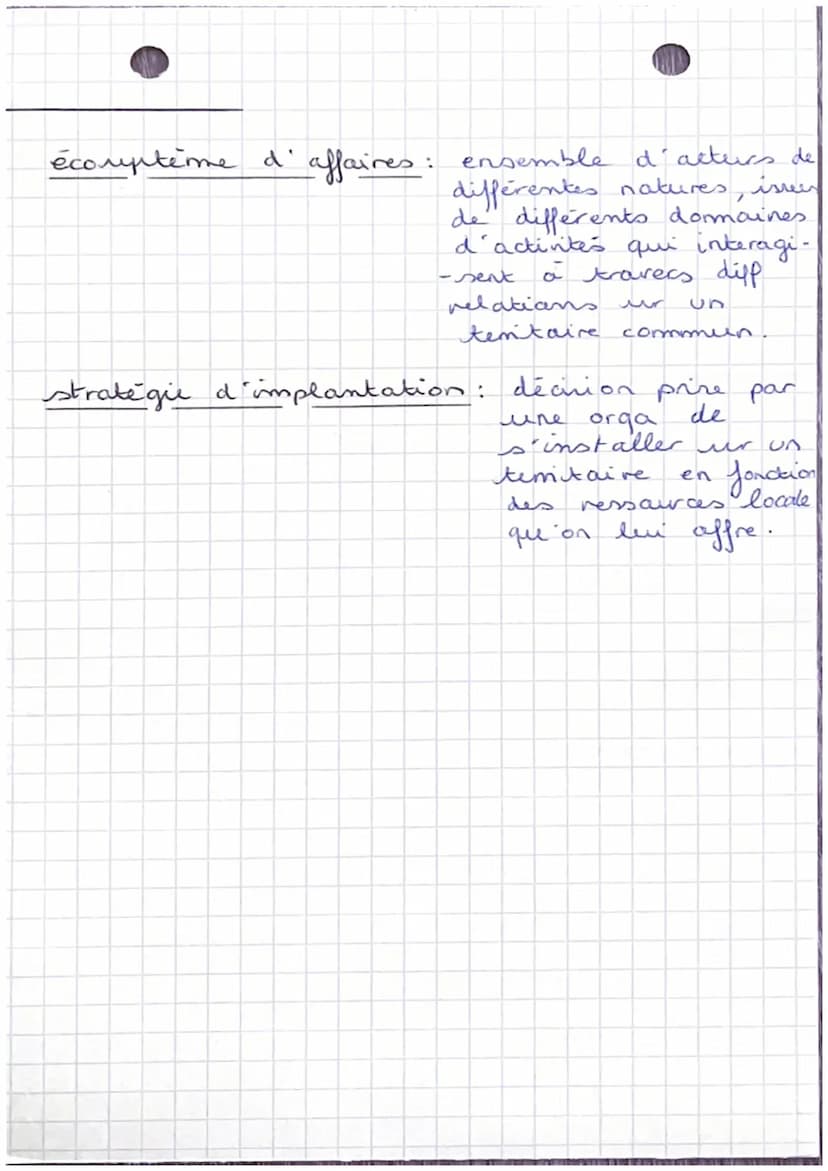 écosystème d'affaires : ensemble d'acteurs de
différentes natures, issues
de différents domaines
d'activités qui interagi-
-sent à travers diff
relations sur un
territoire commun.
stratégie d'implantation : décision prise par
une orga de
s'installer sur un
territoire en fonction
des ressources locale
qu'on lui offre.